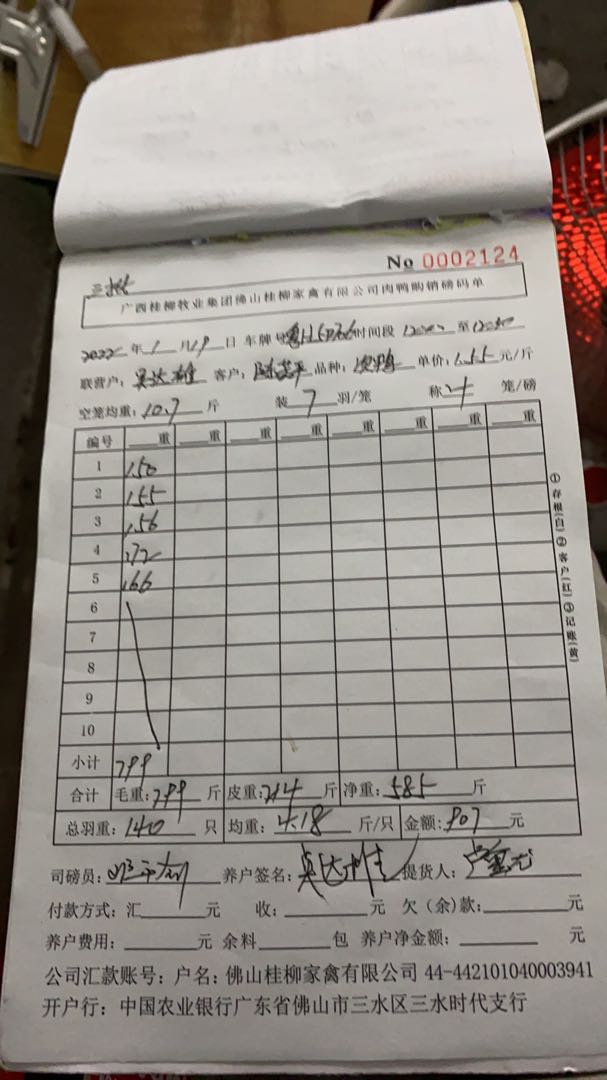 No 0002124
三
广西桂柳牧业集团佛山桂柳家禽有限公司肉鸭购销磅码单
2022年1月19日 车牌号 时间段 至
联营户：吴达雄 客户： 品种： 鸭 单价：1.55元/斤
空笼均重：10.7斤 装7羽/笼 称4笼/磅
编号 重 重 重 重 重 重 重 重
1 150
2 155
3 156
4 172
5 166
6
7
8
9
10
小计 799
合计 毛重：799斤 皮重：214斤 净重：585斤
总羽重：140只 均重：4.18斤/只 金额：907元
司磅员： 养户签名：吴达雄 提货人：
付款方式：汇 元 收： 元 欠(余)款： 元
养户费用： 元 余料 包 养户净金额： 元
公司汇款账号：户名：佛山桂柳家禽有限公司 44-442101040003941
开户行：中国农业银行广东省佛山市三水区三水时代支行
①存根(白)②客户(红)③记账(黄)